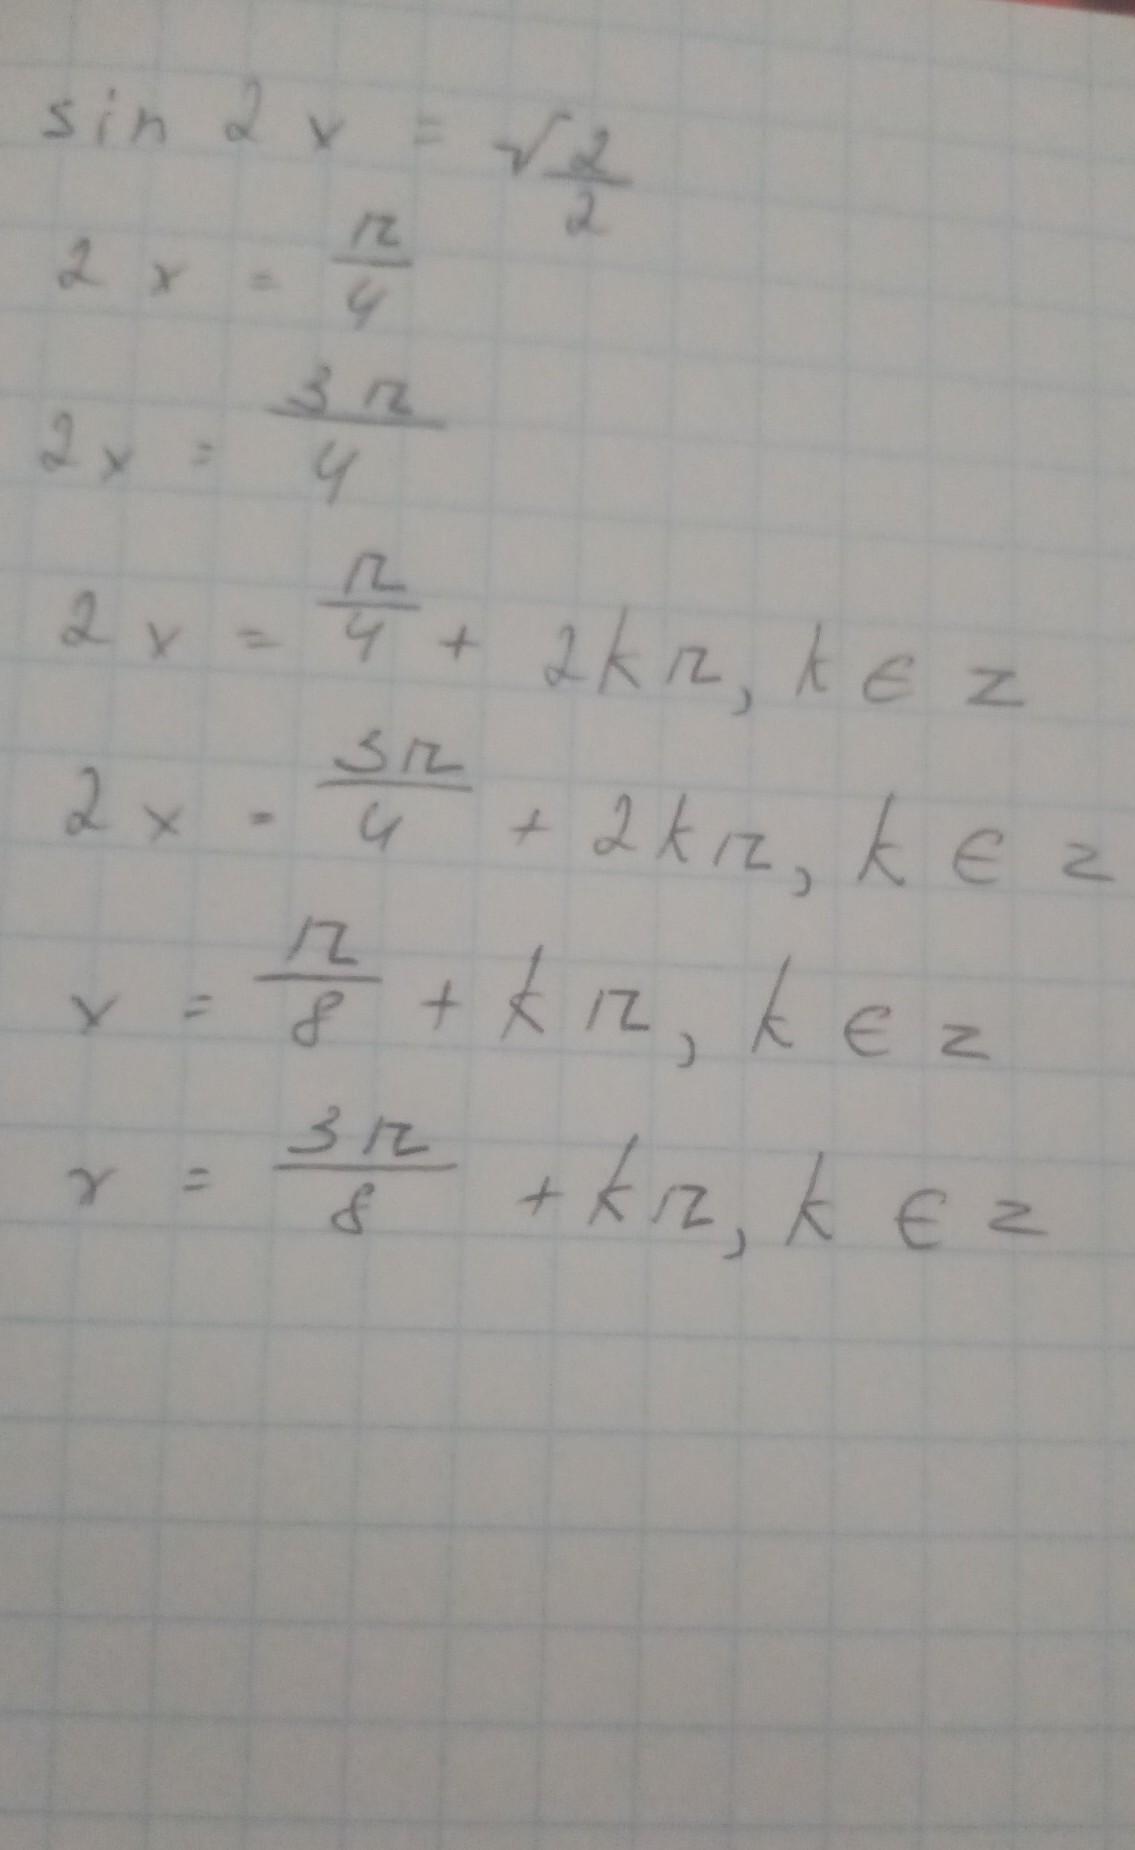 sin 2x = √2/2
2x = π/4
2x = 3π/4
2x = π/4 + 2kπ, k ∈ z
2x = 3π/4 + 2kπ, k ∈ z
x = π/8 + kπ, k ∈ z
x = 3π/8 + kπ, k ∈ z